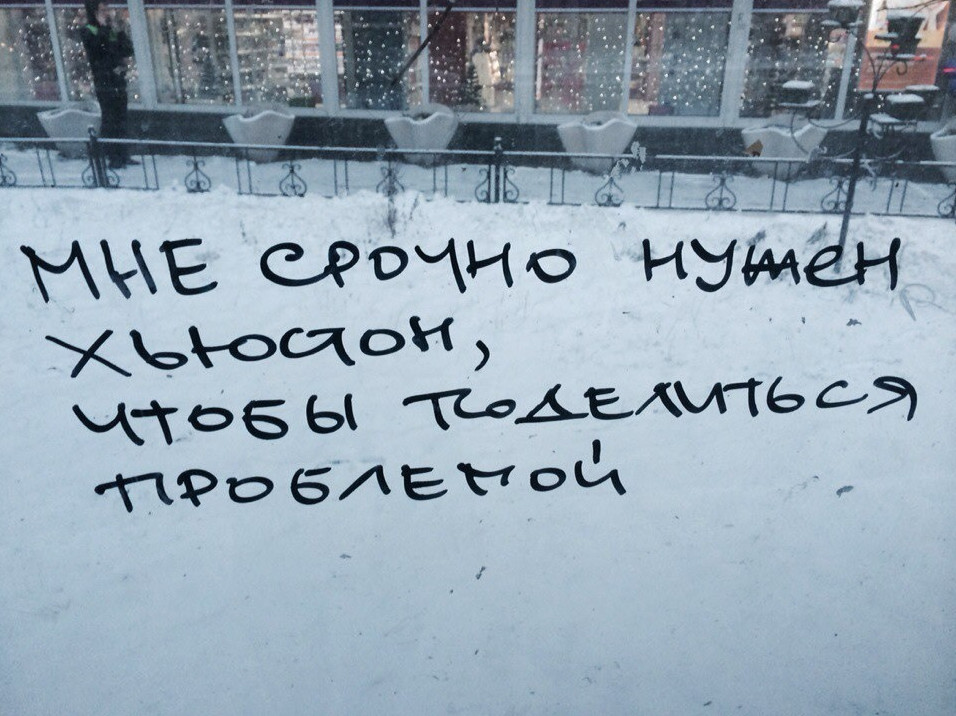 МНЕ СРОЧНО НУЖЕН
ХЬЮСТОН,
ЧТОБЫ ПОДЕЛИТЬСЯ
ПРОБЛЕМОЙ